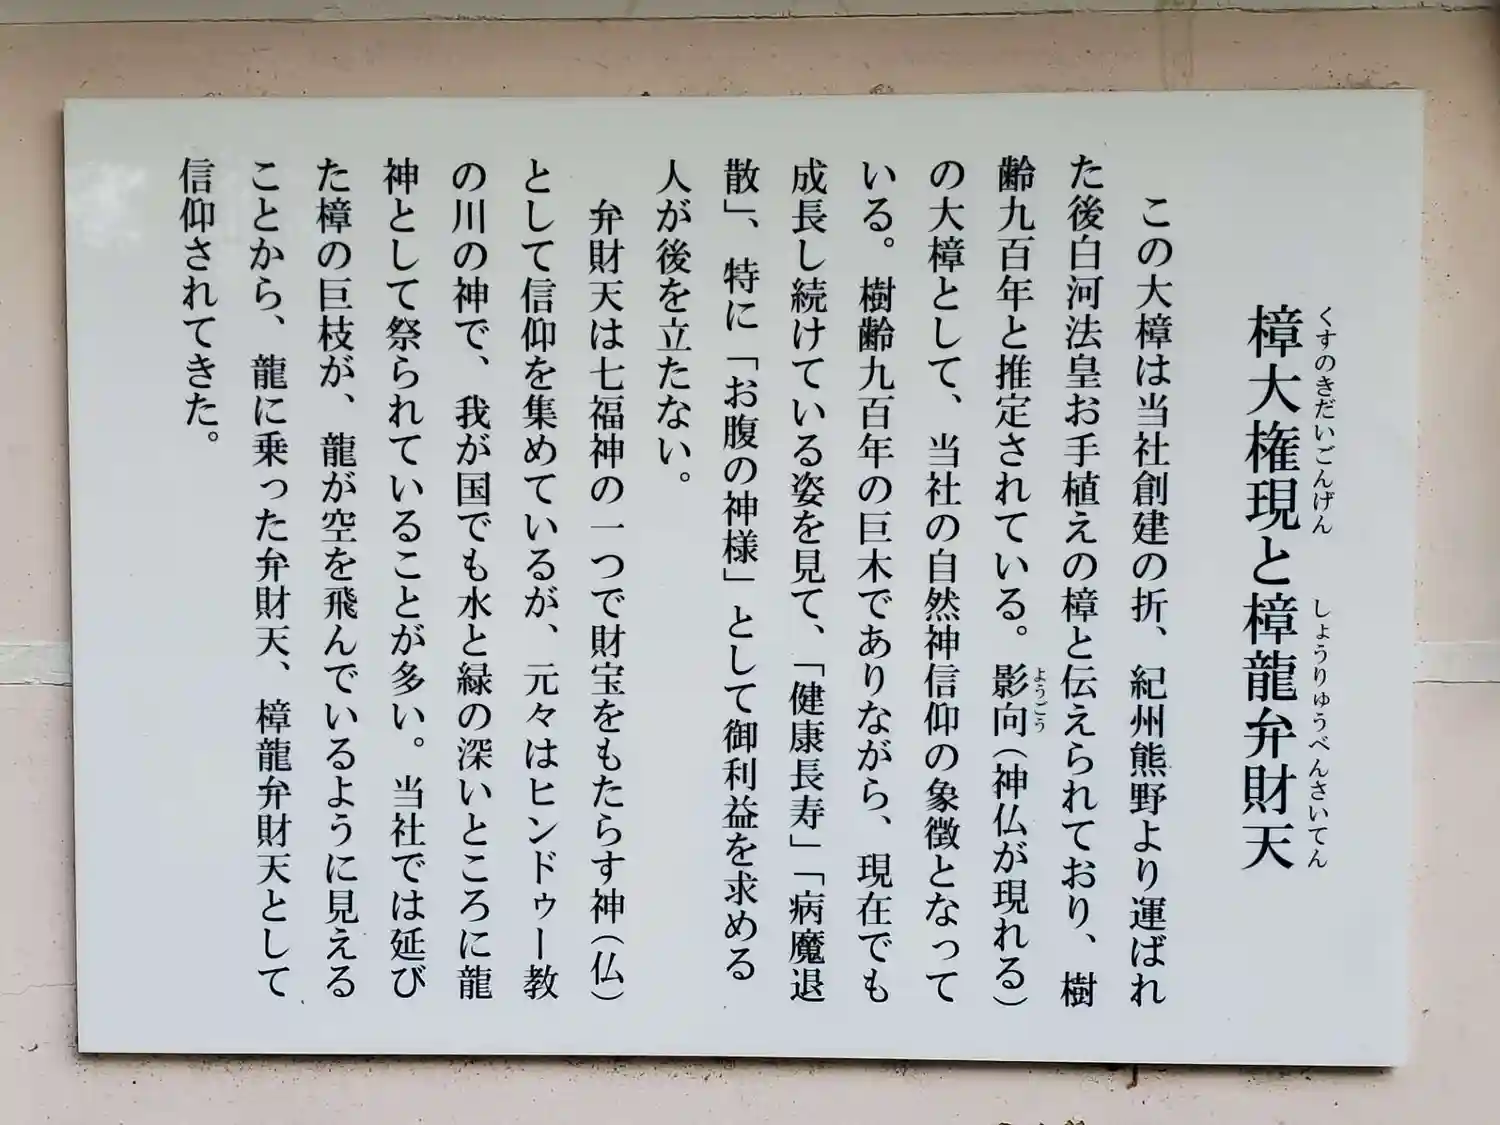 樟大権現と樟龍弁財天
くすのきだいごんげん
しょうりゅうべんざいてん
この大樟は当社創建の折、紀州熊野より運ばれ
た後白河法皇お手植えの樟と伝えられており、樹
齢九百年と推定されている。影向(神仏が現れる)
ようごう
の大樟として、当社の自然神信仰の象徴となって
いる。樹齢九百年の巨木でありながら、現在でも
成長し続けている姿を見て、「健康長寿」「病魔退
散」、特に「お腹の神様」として御利益を求める
人が後を立たない。
弁財天は七福神の一つで財宝をもたらす神(仏)
として信仰を集めているが、元々はヒンドゥー教
の川の神で、我が国でも水と緑の深いところに龍
神として祭られていることが多い。当社では延び
た樟の巨枝が、龍が空を飛んでいるように見える
ことから、龍に乗った弁財天、樟龍弁財天として
信仰されてきた。